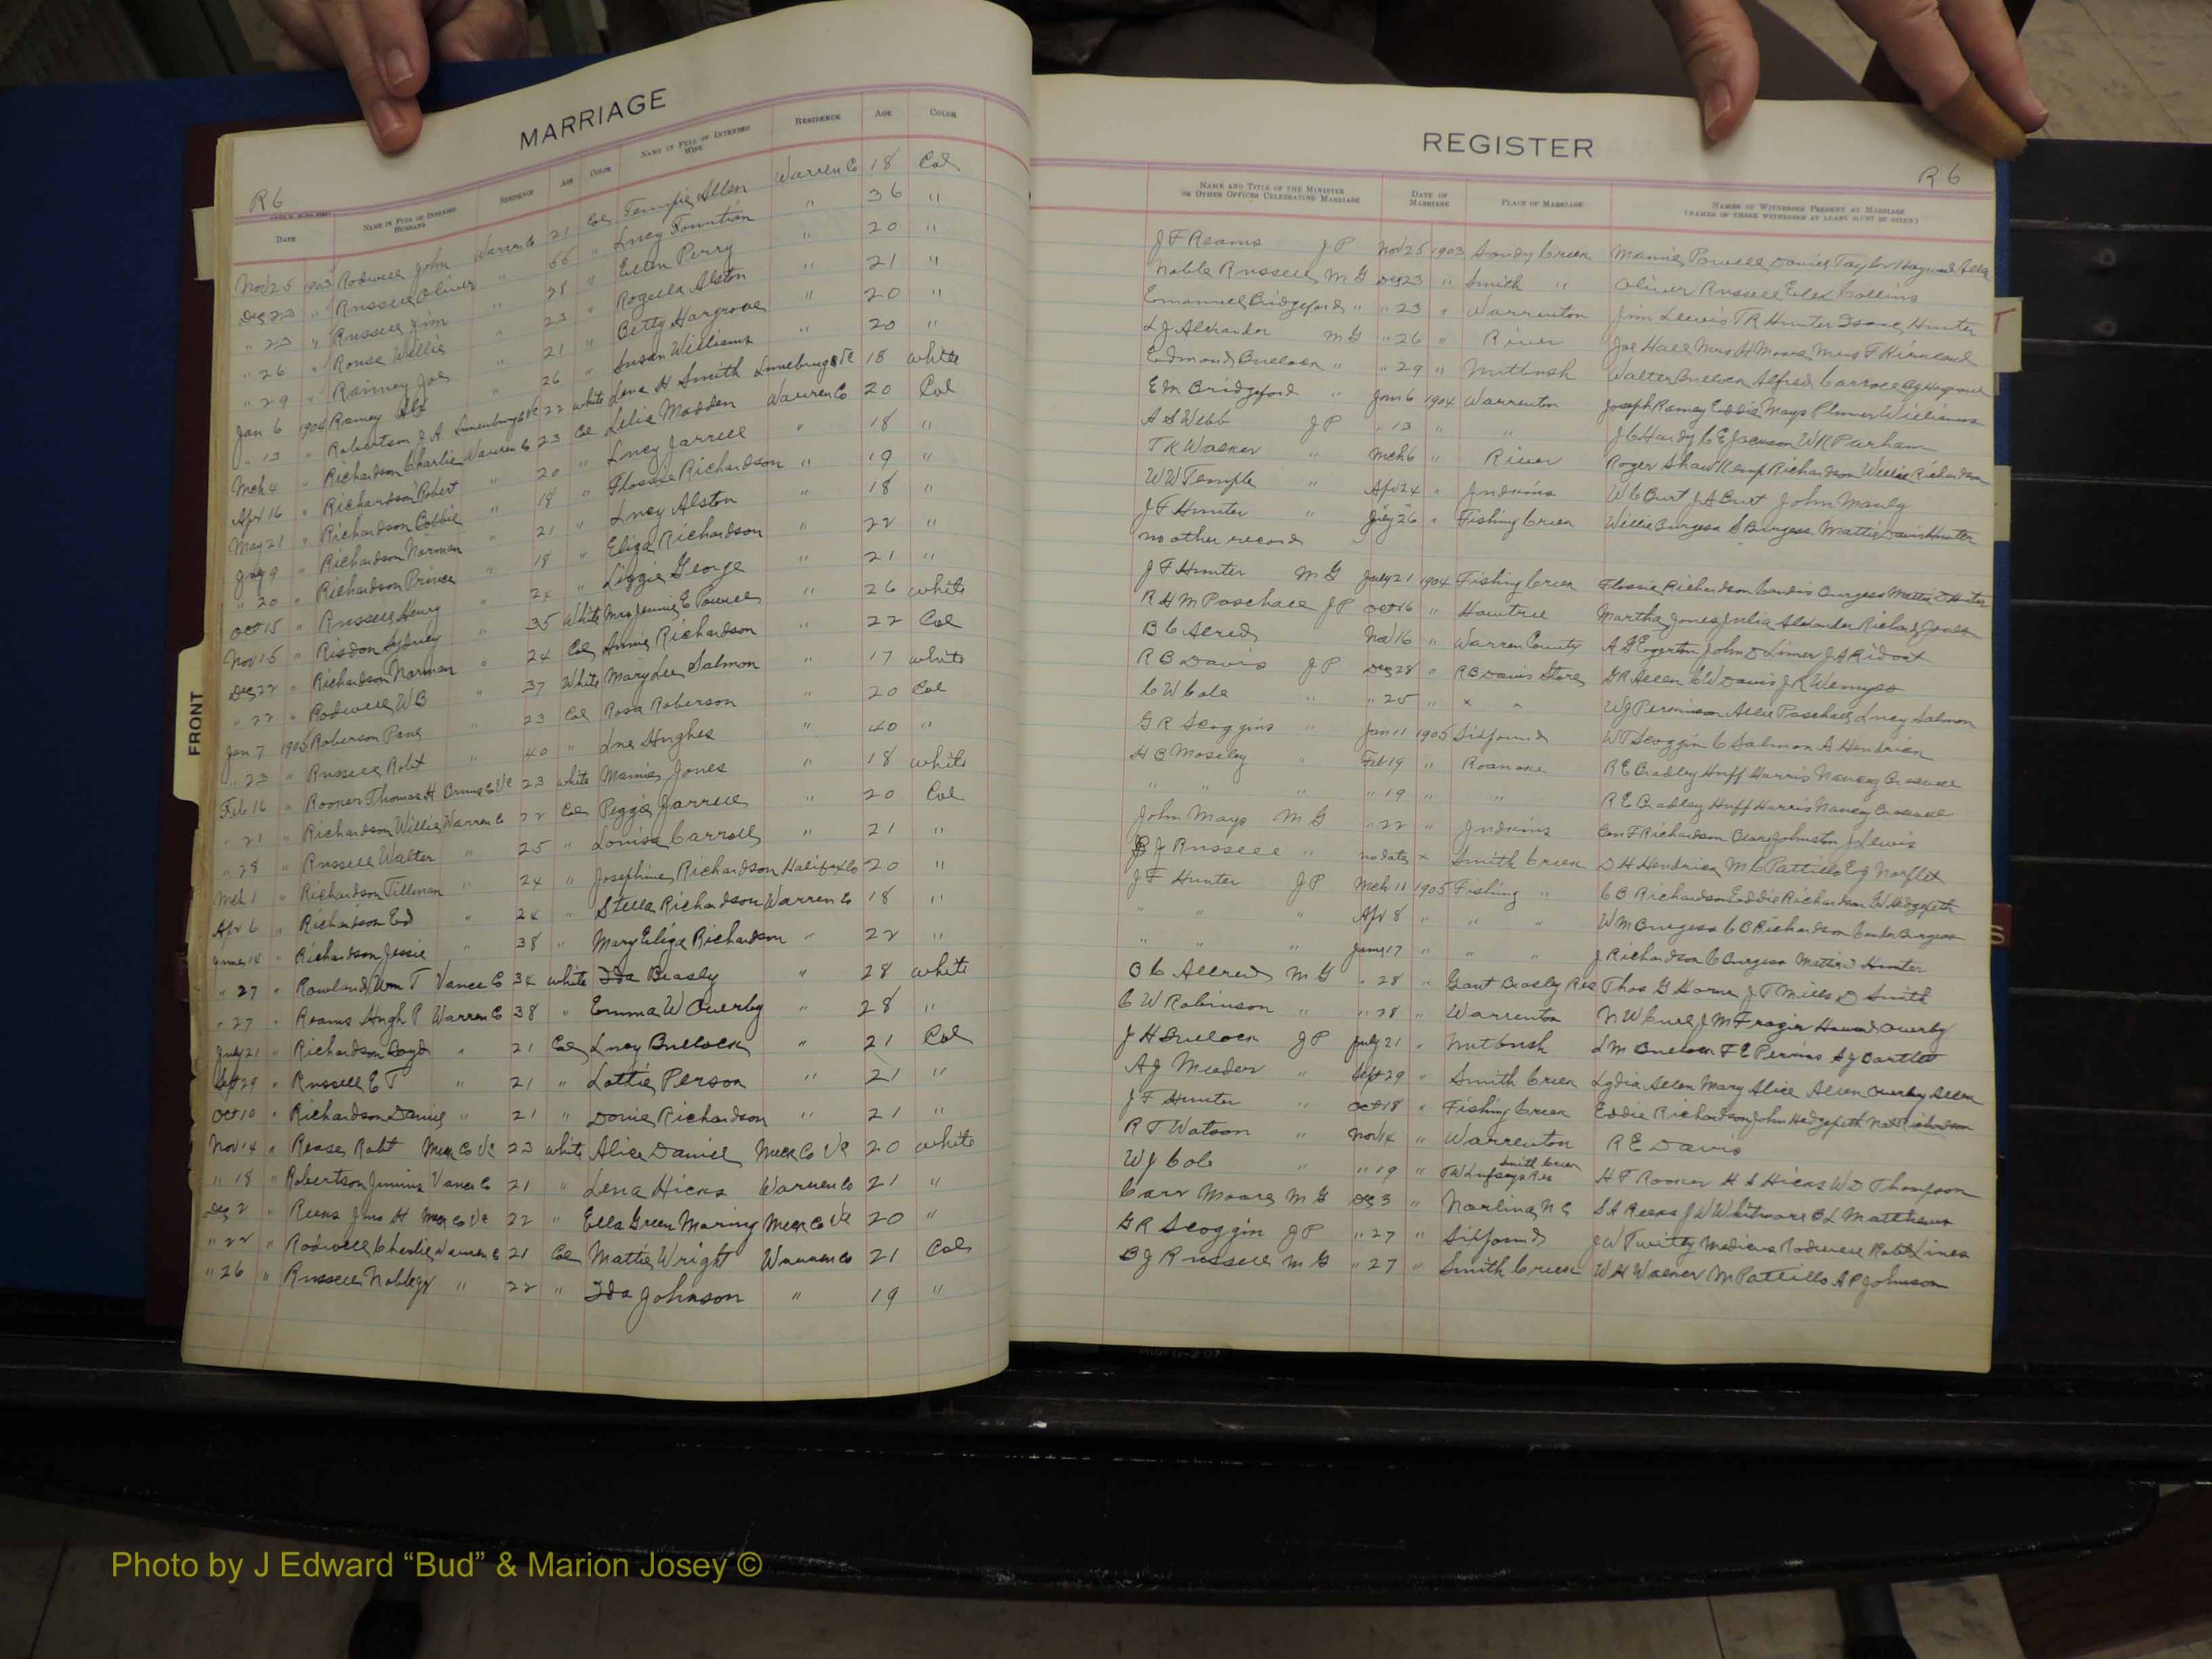 MARRIAGE
R6
DATE NAME IN FULL OF INTENDED HUSBAND RESIDENCE AGE COLOR NAME IN FULL OF INTENDED WIFE RESIDENCE AGE COLOR
Nov 25 1903 Rodwell John Warren Co 21 Col Tempie Allen Warren Co 18 Col
Dec 23 " Russell Oliver " 66 " Lucy Fountian " 36 "
" 23 " Russell Jim " 28 " Ellen Perry " 20 "
" 26 " Rouse Willie " 23 " Rogella Alston " 21 "
" 29 " Rainey Joe " 21 " Betty Hargrove " 20 "
Jan 6 1904 Ramey " 26 " Susan Williams " 20 "
" 13 " Robertson J A Lunenburg Va 22 white Lena H Smith Lunenburg Va 18 white
Mch 4 " Richardson Charlie Warren Co 23 Col Lelia Madden Warren Co 20 Col
Apr 16 " Richardson Robert " 20 " Lucy Jarrell " 18 "
May 21 " Richardson " 18 " Flossie Richardson " 19 "
July 9 " Richardson Norman " 21 " Lucy Alston " 18 "
" 20 " Richardson Prince " 18 " Eliza Richardson " 22 "
Oct 15 " Russell Henry " 24 " Lizzie George " 21 "
Nov 15 " Risdon Sydney " 35 White Mrs Jennie E Powell " 26 white
Dec 22 " Richardson Norman " 24 Col Annie Richardson " 22 Col
" 22 " Rodwell W B " 37 White Mary Lee Salmon " 17 white
Jan 7 1905 Roberson Paul " 23 Col Rosa Roberson " 20 Col
" 23 " Russell Robt " 40 " Hughes " 40 "
Feb 16 " Rooker Thomas H Bruns Co Va 23 white Mamie Jones " 18 white
" 21 " Richardson Willie Warren Co 22 Col Peggie Jarrell " 20 Col
" 28 " Russell Walter " 25 " Louisa Carroll " 21 "
Mch 1 " Richardson Tillman " 24 " Josephine Richardson Halifax Co 20 "
Apr 6 " Richardson Ed " 24 " Stella Richardson Warren Co 18 "
June 14 " Richardson Jessie " 38 " Mary Eliza Richardson " 22 "
" 27 " Rowland Wm T Vance Co 34 white Ida Beasly " 28 white
" 27 " Reams Hugh P Warren Co 38 " Emma W Overby " 28 "
July 21 " Richardson Boyd " 21 Col Lucy Bullock " 21 Col
Sept 29 " Russell E T " 21 " Lottie Person " 21 "
Oct 10 " Richardson Daniel " 21 " Donie Richardson " 21 "
Nov 14 " Rease Robt Meck Co Va 23 white Alice Daniel Meck Co Va 20 white
" 18 " Robertson Junius Vance Co 21 " Lena Hicks Warren Co 21 "
Dec 2 " Reeks Jno H Meck Co Va 22 " Ella Green Moring Meck Co Va 20 "
" 22 " Rodwell Charlie Warren Co 21 Col Mattie Wright Warren Co 21 Col
" 26 " Russell Noble Jr " 22 " Ida Johnson " 19 "
FRONT
REGISTER
R6
NAME AND TITLE OF THE MINISTER OR OTHER OFFICER CELEBRATING MARRIAGE DATE OF MARRIAGE PLACE OF MARRIAGE NAMES OF WITNESSES PRESENT AT MARRIAGE (NAMES OF THREE WITNESSES AT LEAST MUST BE GIVEN)
J F Reams J P Nov 25 1903 Sandy Creek Mamie Powell Daniel Taylor Haywood Allen
Noble Russell M G Dec 23 " Smith " Oliver Russell Collins
Emanuel Bridgeford " " 23 " Warrenton Jim Lewis T R Hunter Isaac Hunter
L J Alexander M G " 26 " River Joe Hall Mrs H Moore Mrs F Kirkland
Edmond Bullock " " 29 " Nutbush Walter Bullock Alfred Carroll
E M Bridgeford " Jan 6 1904 Warrenton Joseph Ramey Eddie Mays Plumer Williams
A S Webb J P " 13 " " J C Hardy C E Jackson W R Parham
T R Walker " Mch 6 " River Roger Shaw Kemp Richardson Willie Richardson
W W Temple " Apr 24 " Judkins W C Burt J A Burt John Manly
J F Hunter " July 26 " Fishing Creek Willie Burgess S Burgess Mattie Davis Hunter
no other record
J F Hunter M G July 21 1904 Fishing Creek Flossie Richardson Candis Burgess Mattie D Hunter
R H M Paschall J P Oct 16 " Hawtree Martha Jones Julia Alexander Richard Jones
B C Alred Nov 16 " Warren County A G Egerton John D Limer J A Ridout
R B Davis J P Dec 28 " R B Davis Store G R Allen C W Davis J R Wemyss
C W Cole " " 25 " " " W J Perkinson Allie Paschall Lucy Salmon
G R Scoggins " Jan 11 1905 Sixpound W T Scoggin C Salmon A Hendrick
H B Mosely " Feb 19 " Roanoke R E Bradley Huff Harris Nancy
" " " " 19 " " R E Bradley Huff Harris Nancy
John Mays M G " 22 " Judkins Con F Richardson Johnston J Lewis
B J Russell " no date " Smith Creek D H Hendrick M C Pattillo E J Norflet
J F Hunter J P Mch 11 1905 Fishing " C B Richardson Eddie Richardson W Hedgepeth
" " " Apr 8 " " " W M Burgess C B Richardson Burgess
" " " June 17 " " " J Richardson C Burgess Mattie D Hunter
B C Allred M G " 28 " Grant Beasly Res Thos G Horner J T Mills D Smith
C W Robinson " " 28 " Warrenton N W Curl J M Frazier Howard Overby
J H Bullock J P July 21 " Nutbush L M Bullock F E Perkins A J Bartlett
A J Meader " Sept 29 " Smith Creek Lydia Allen Mary Alice Allen Overby Allen
J F Hunter " Oct 18 " Fishing Creek Eddie Richardson John Hedgepeth Nat Richardson
R T Watson " Nov 14 " Warrenton R E Davis
W J Cole " " 19 " Smith Creek Res H F Rooker H S Hicks W D Thompson
Carr Moore M G Dec 3 " Norlina N C S A Reeks J W Whitmore B L Matthews
G R Scoggin J P " 27 " Sixpound J W Twitty Rodwell Robt Hines
B J Russell M G " 27 " Smith Creek W H Walker M Pattillo A P Johnson
Photo by J Edward “Bud” & Marion Josey ©